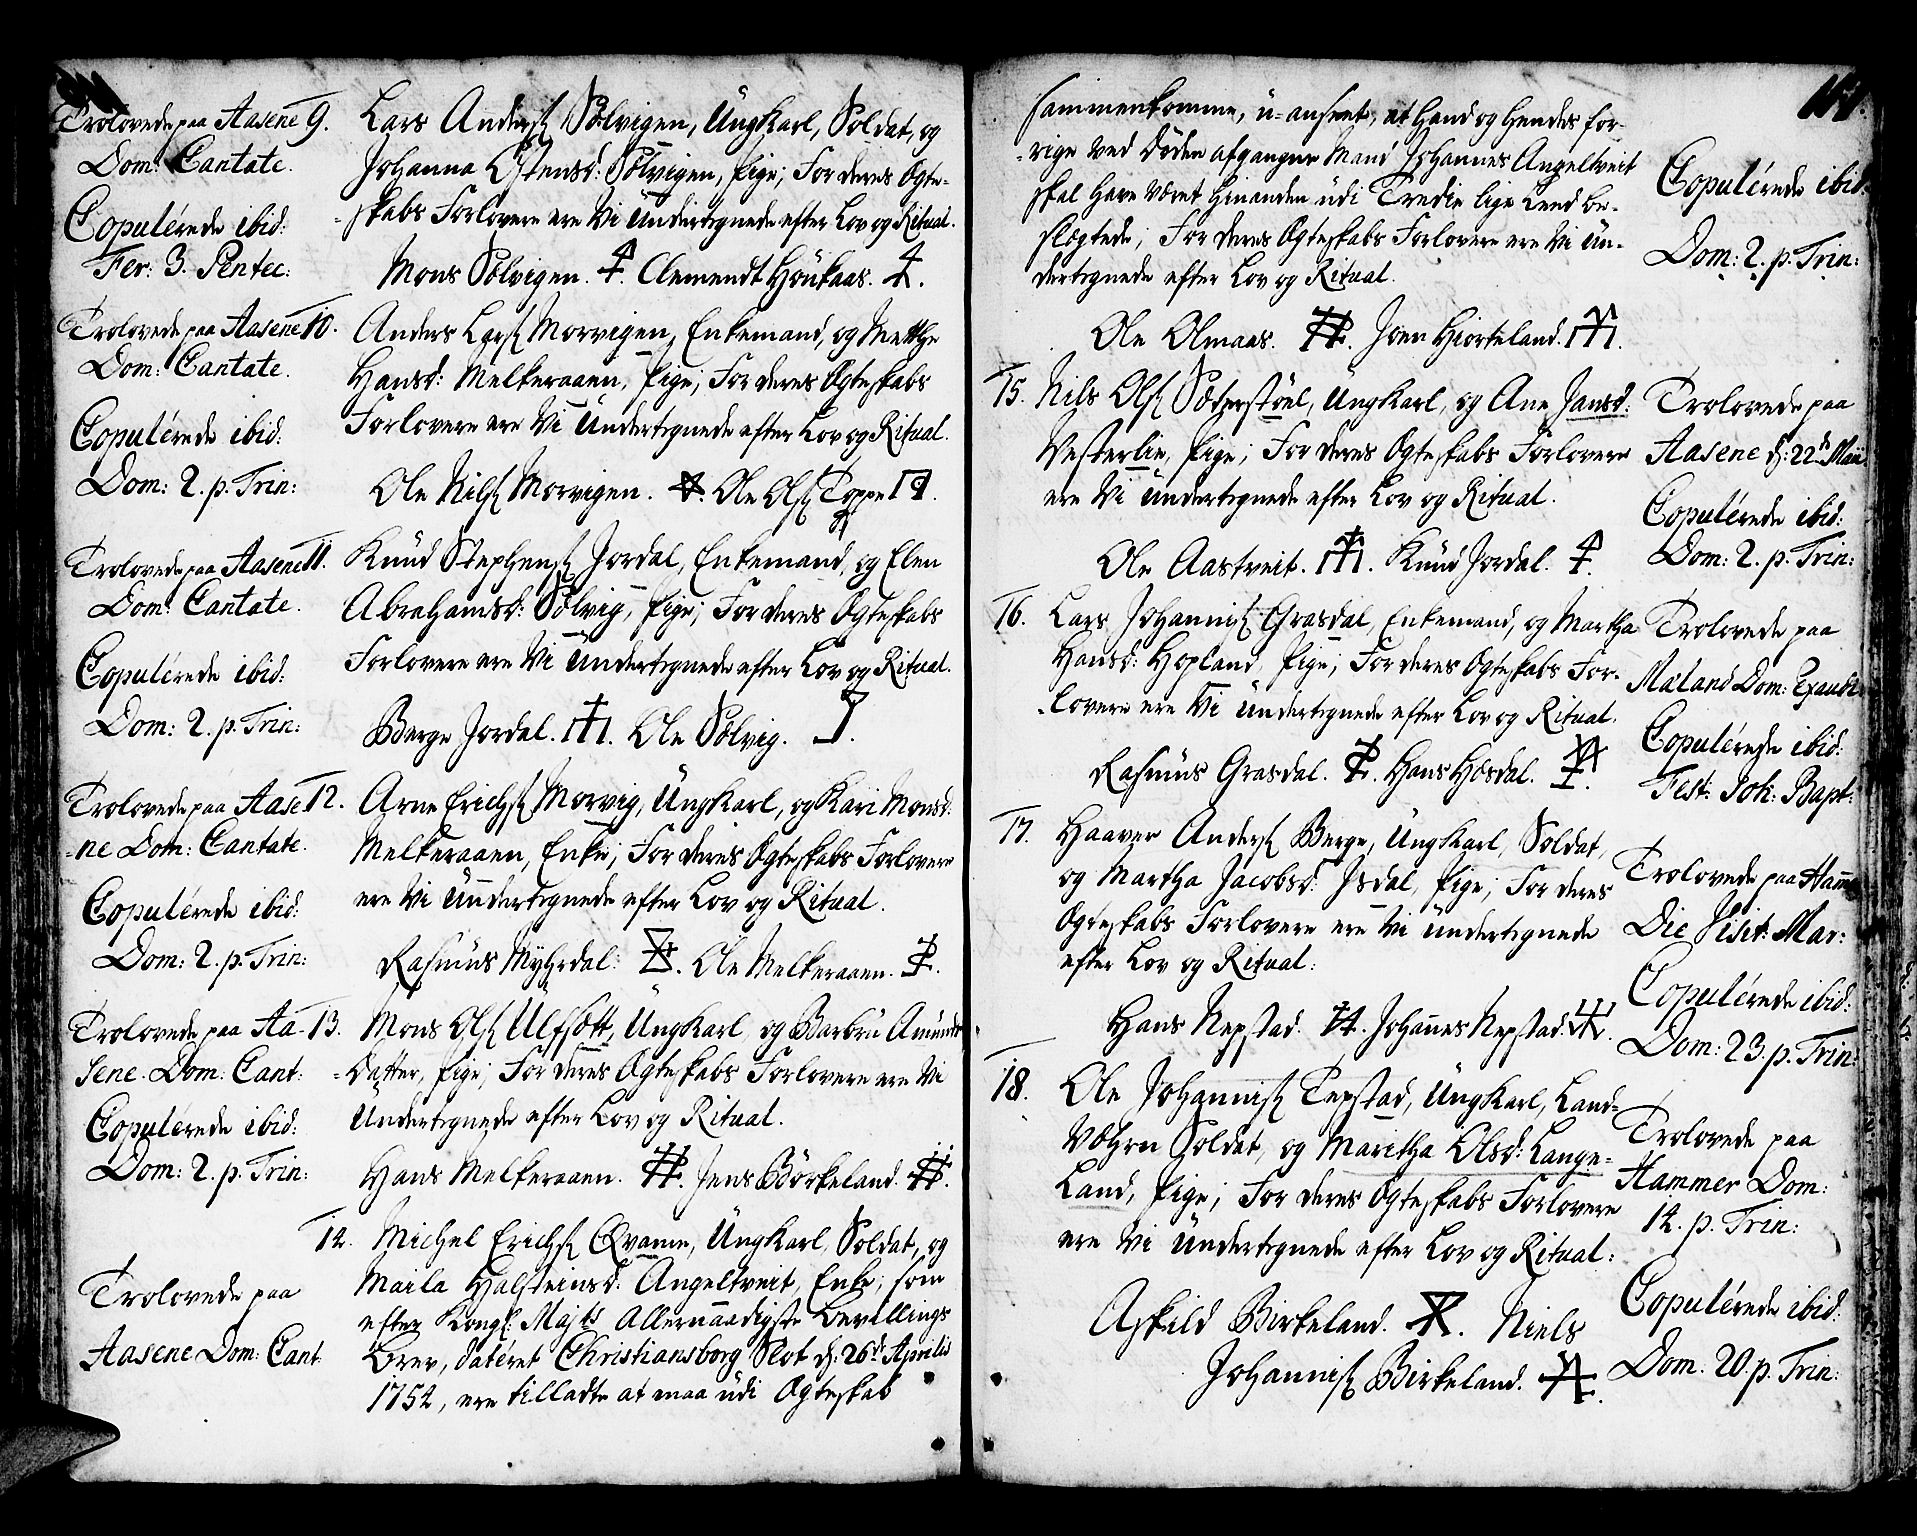 Trolovede paa Aasene
Dom: Cantate.
Copulérede ibid:
Fer: 3. Pentec:
9. Lars Anders: Sølvigen, Ungkarl, Soldat, og
Johanna Ostensd: Sølvigen, Pige; For deres Ægte-
-skabs Forlovere ere Vi Undertegnede efter Lov og Ritual.
Mons Sølvigen. Clemendt Høukaas.
Trolovede paa Aasene
Dom: Cantate.
Copulérede ibid:
Dom: 2. p. Trin:
10. Anders Lars: Morvigen, Enkemand, og Metthe
Hansd: Melkeraaen, Pige; For deres Ægteskabs
Forlovere ere Vi Undertegnede efter Lov og Ritual.
Ole Nils: Morvigen. Ole Ols: Toppe
Trolovede paa Aasene
Dom: Cantate.
Copulérede ibid:
Dom: 2. p. Trin:
11. Knud Stephens: Jordal, Enkemand, og Elen
Abrahamsd: Sølvig, Pige; For deres Ægteskabs
Forlovere ere Vi Undertegnede efter Lov og Ritual.
Berge Jordal. Ole Sølvig.
Trolovede paa Aase-
-ne Dom: Cantate.
Copulérede ibid:
Dom: 2. p. Trin:
12. Arne Erichs: Morvig, Ungkarl, og Kari Monsd:
Melkeraaen, Enke; For deres Ægteskabs Forlovere
ere Vi Undertegnede efter Lov og Ritual.
Rasmus Myhrdal: Ole Melkeraaen.
Trolovede paa Aa-
sene. Dom: Cant:
Copulérede ibid:
Dom: 2. p. Trin:
13. Mons Ols: Ulfsætt, Ungkarl, og Barbru Amunds
-Datter, Pige; For deres Ægteskabs Forlovere ere Vi
Undertegnede efter Lov og Ritual.
Hans Melkeraaen. Jens Børkeland.
Trolovede paa
Aasene Dom: Cant:
14. Michel Erichs: Qvamme, Ungkarl, Soldat, og
Maila Halsteinsd: Angeltveit, Enke; som
efter Kongl: Majts Allernaadigste Bevillings
Brev, datéret Christiansborg Slot d: 26de Aprilis
1754, ere tilladte at maa udi Ægteskab
sammenkomme, u-anseet, at Hand og Hendes for-
-rige ved Døden afgangne Mand Johannes Angeltveit
skal have været hinanden udi Tredie lige Leed be-
slægtede; For deres Ægteskabs Forlovere ere Vi Un-
dertegnede efter Lov og Ritual.
Ole Olmaas. Joen Hiorteland.
Copulérede ibid:
Dom: 2. p. Trin:
15. Nils Ols: Sæterstøel, Ungkarl, og Ane Jansd:
Vesterlie, Pige; For deres Ægteskabs Forlovere
ere Vi Undertegnede efter Lov og Ritual.
Ole Aastveit. Knud Jordal.
Trolovede paa
Aasene d: 22de Maii
Copulérede ibid:
Dom: 2. p. Trin:
16. Lars Johannis: Grasdal, Enkemand, og Martha
Hansd: Hopland, Pige; For deres Ægteskabs For-
-lovere ere Vi Undertegnede efter Lov og Ritual.
Rasmus Grasdal. Hans Hosdal.
Trolovede paa
Mæland Dom: Exaudi
Copulérede ibid:
Fest: Joh: Bapt:
17. Haaver Anders: Berge, Ungkarl, Soldat,
og Martha Jacobsd: Isdal, Pige; For deres
Ægteskabs Forlovere ere Vi Undertegnede
efter Lov og Ritual:
Hans Nepstad. Johanes Nepstad.
Trolovede paa Hamme
Die Visit: Mar:
Copulérede ibid:
Dom: 23. p. Trin:
18. Ole Johannis: Tepstad, Ungkarl, Land-
Værn Soldat, og Maritha Olsd: Lange-
Land, Pige; For deres Ægteskabs Forlovere
ere Vi Undertegnede efter Lov og Ritual:
Askild Birkeland. Niels
Johannis: Birkeland.
Trolovede paa
Hammer Dom:
14. p. Trin:
Copulérede ibid:
Dom. 20. p. Trin: